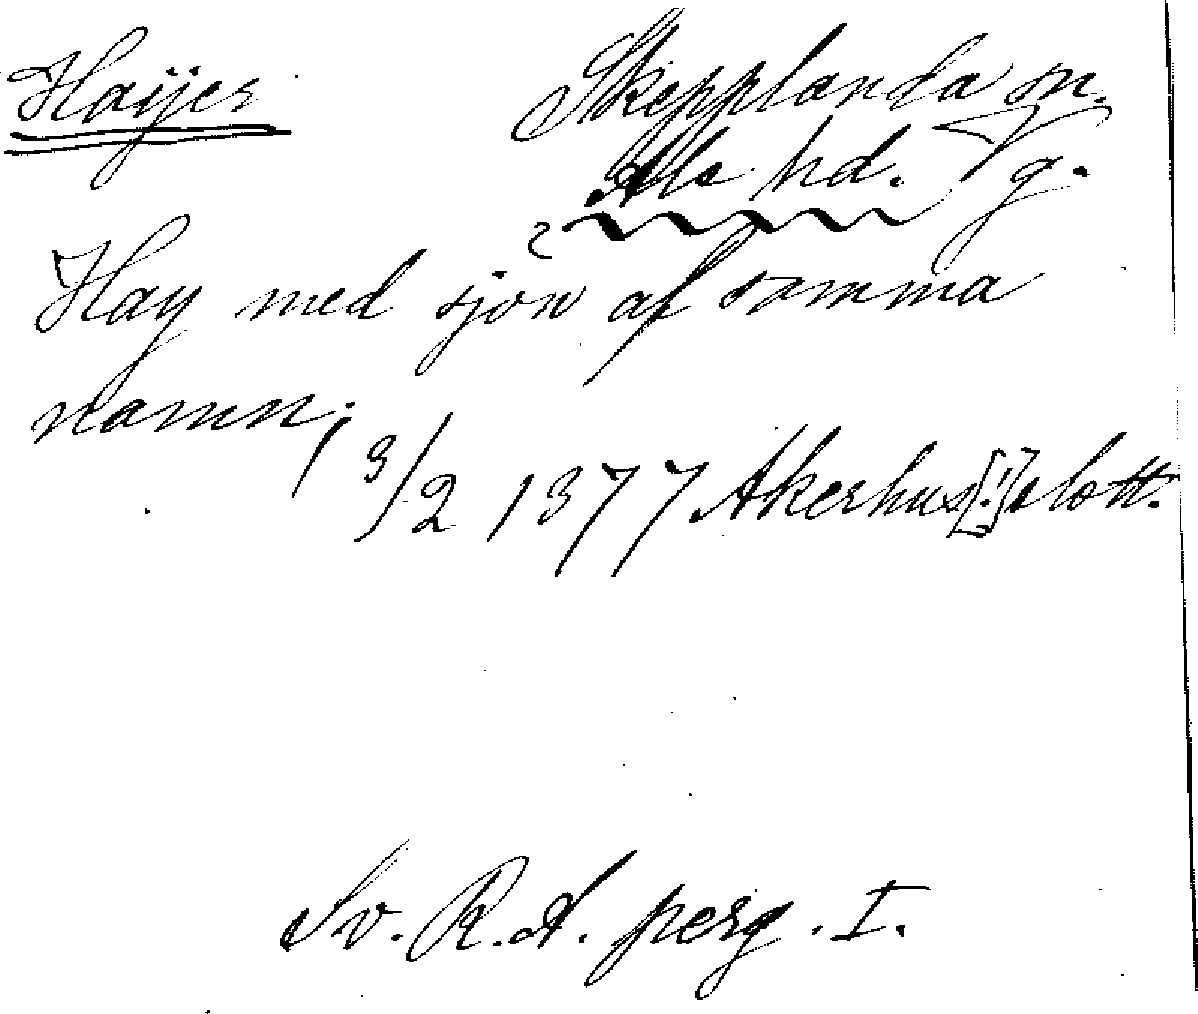 Haijer
Skepplanda sn.
Ale hd. Vg.
Hay med sjön af samma
namn.
3/2 1377 Akerhus [!] slott.
Sv. R.A. perg. I.